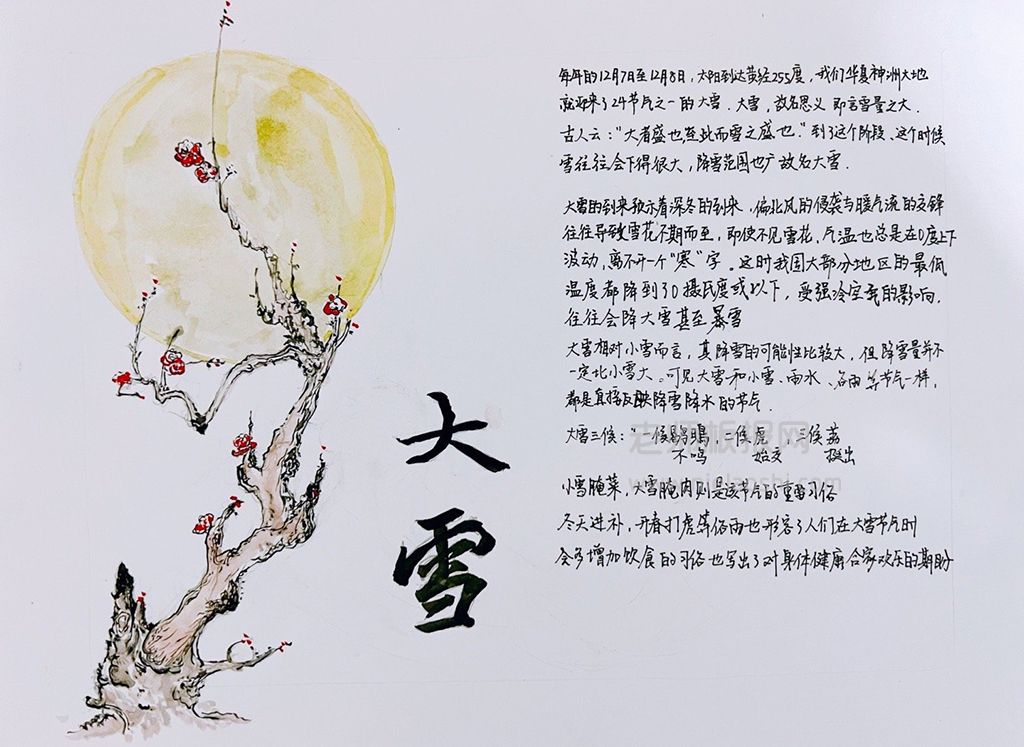 大雪
每年的12月7日至12月8日,太阳到达黄经255度,我们华夏神洲大地
就迎来了24节气之一的大雪.大雪,故名思义 即言雪量之大.
古人云:“大者盛也,至此而雪之盛也.”到了这个阶段、这个时候
雪往往会下得很大,降雪范围也广故名大雪.
大雪的到来预示着深冬的到来,偏北风的侵袭与暖气流的交锋
往往导致雪花不期而至,即使不见雪花,气温也总是在0度上下
波动,离不开一个“寒”字。这时我国大部分地区的最低
温度都降到了0摄氏度或以下,受强冷空气的影响,
往往会降大雪甚至暴雪
大雪相对小雪而言,其降雪的可能性比较大,但降雪量并不
一定比小雪大。可见大雪和小雪、雨水、谷雨等节气一样,
都是直接反映降雪降水的节气.
大雪三候:“一候鹖鴠,二候虎,三候荔
不鸣 始交 挺出
小雪腌菜,大雪腌肉则是该节气的重要习俗
冬天进补,开春打虎等俗雨也形容了人们在大雪节气时
会多增加饮食的习俗也写出了对身体健康合家欢乐的期盼